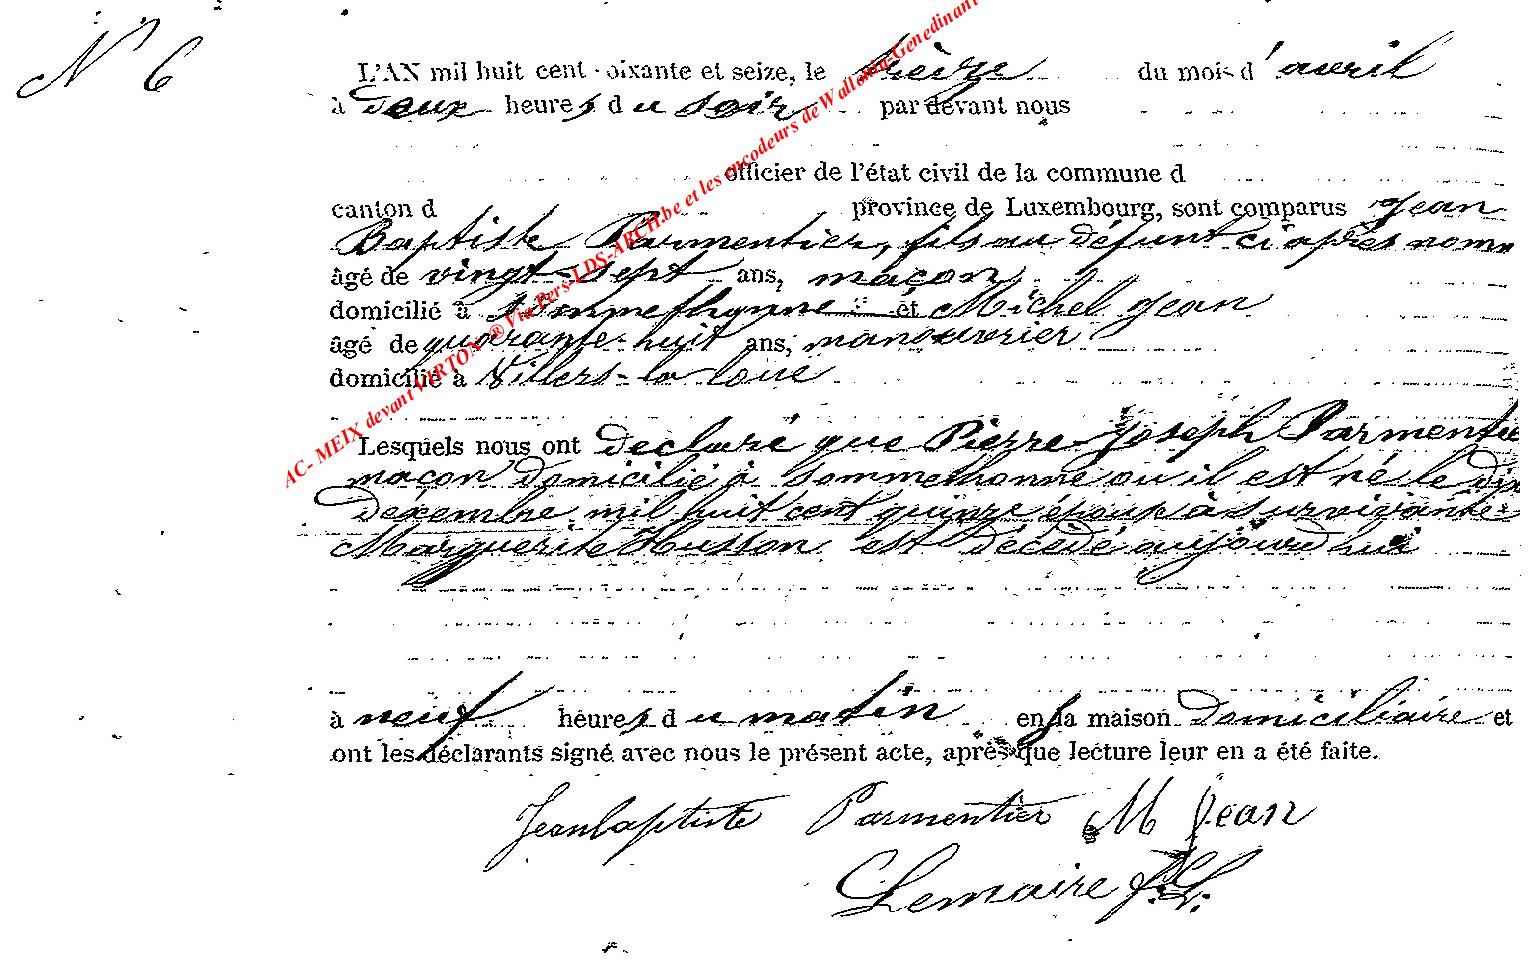 N° 6
L'AN mil huit cent soixante et seize, le treize du mois d'avril
à deux heures du soir par devant nous
officier de l'état civil de la commune d
canton d province de Luxembourg, sont comparus Jean
Baptiste Parmentier, fils au défunt ci après nommé
âgé de vingt-sept ans, maçon
domicilié à Sommethonne et Michel Jean
âgé de quarante-huit ans, manouvrier
domicilié à Villers-la-loue
Lesquels nous ont déclaré que Pierre-Joseph Parmentier
maçon domicilié à Sommethonne ou il est né le
décembre mil huit cent quinze époux à survivante
Marguerite Husson est décédé aujourd'hui
à neuf heures du matin en sa maison domiciliaire et
ont les déclarants signé avec nous le présent acte, après que lecture leur en a été faite.
Jeanbaptiste Parmentier M Jean
Lemaire
AC- MEIX devant VIRTON ® Via Pers-LDS-ARCH.be et les encodeurs de Wallonia-Genedinant